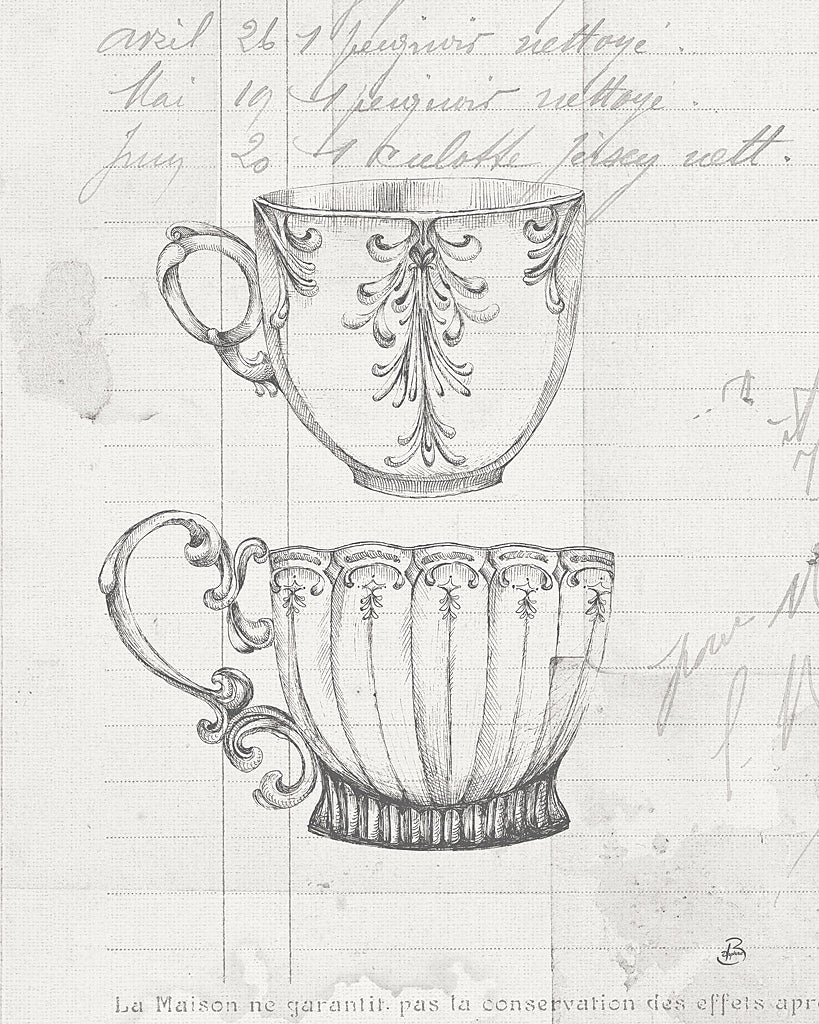 avril 26 1 peignoir nettoyé.
Mai 19 1 peignoir nettoyé.
Juin 20 1 culotte Jersey nett.
pour
La Maison ne garantit pas la conservation des effets apr